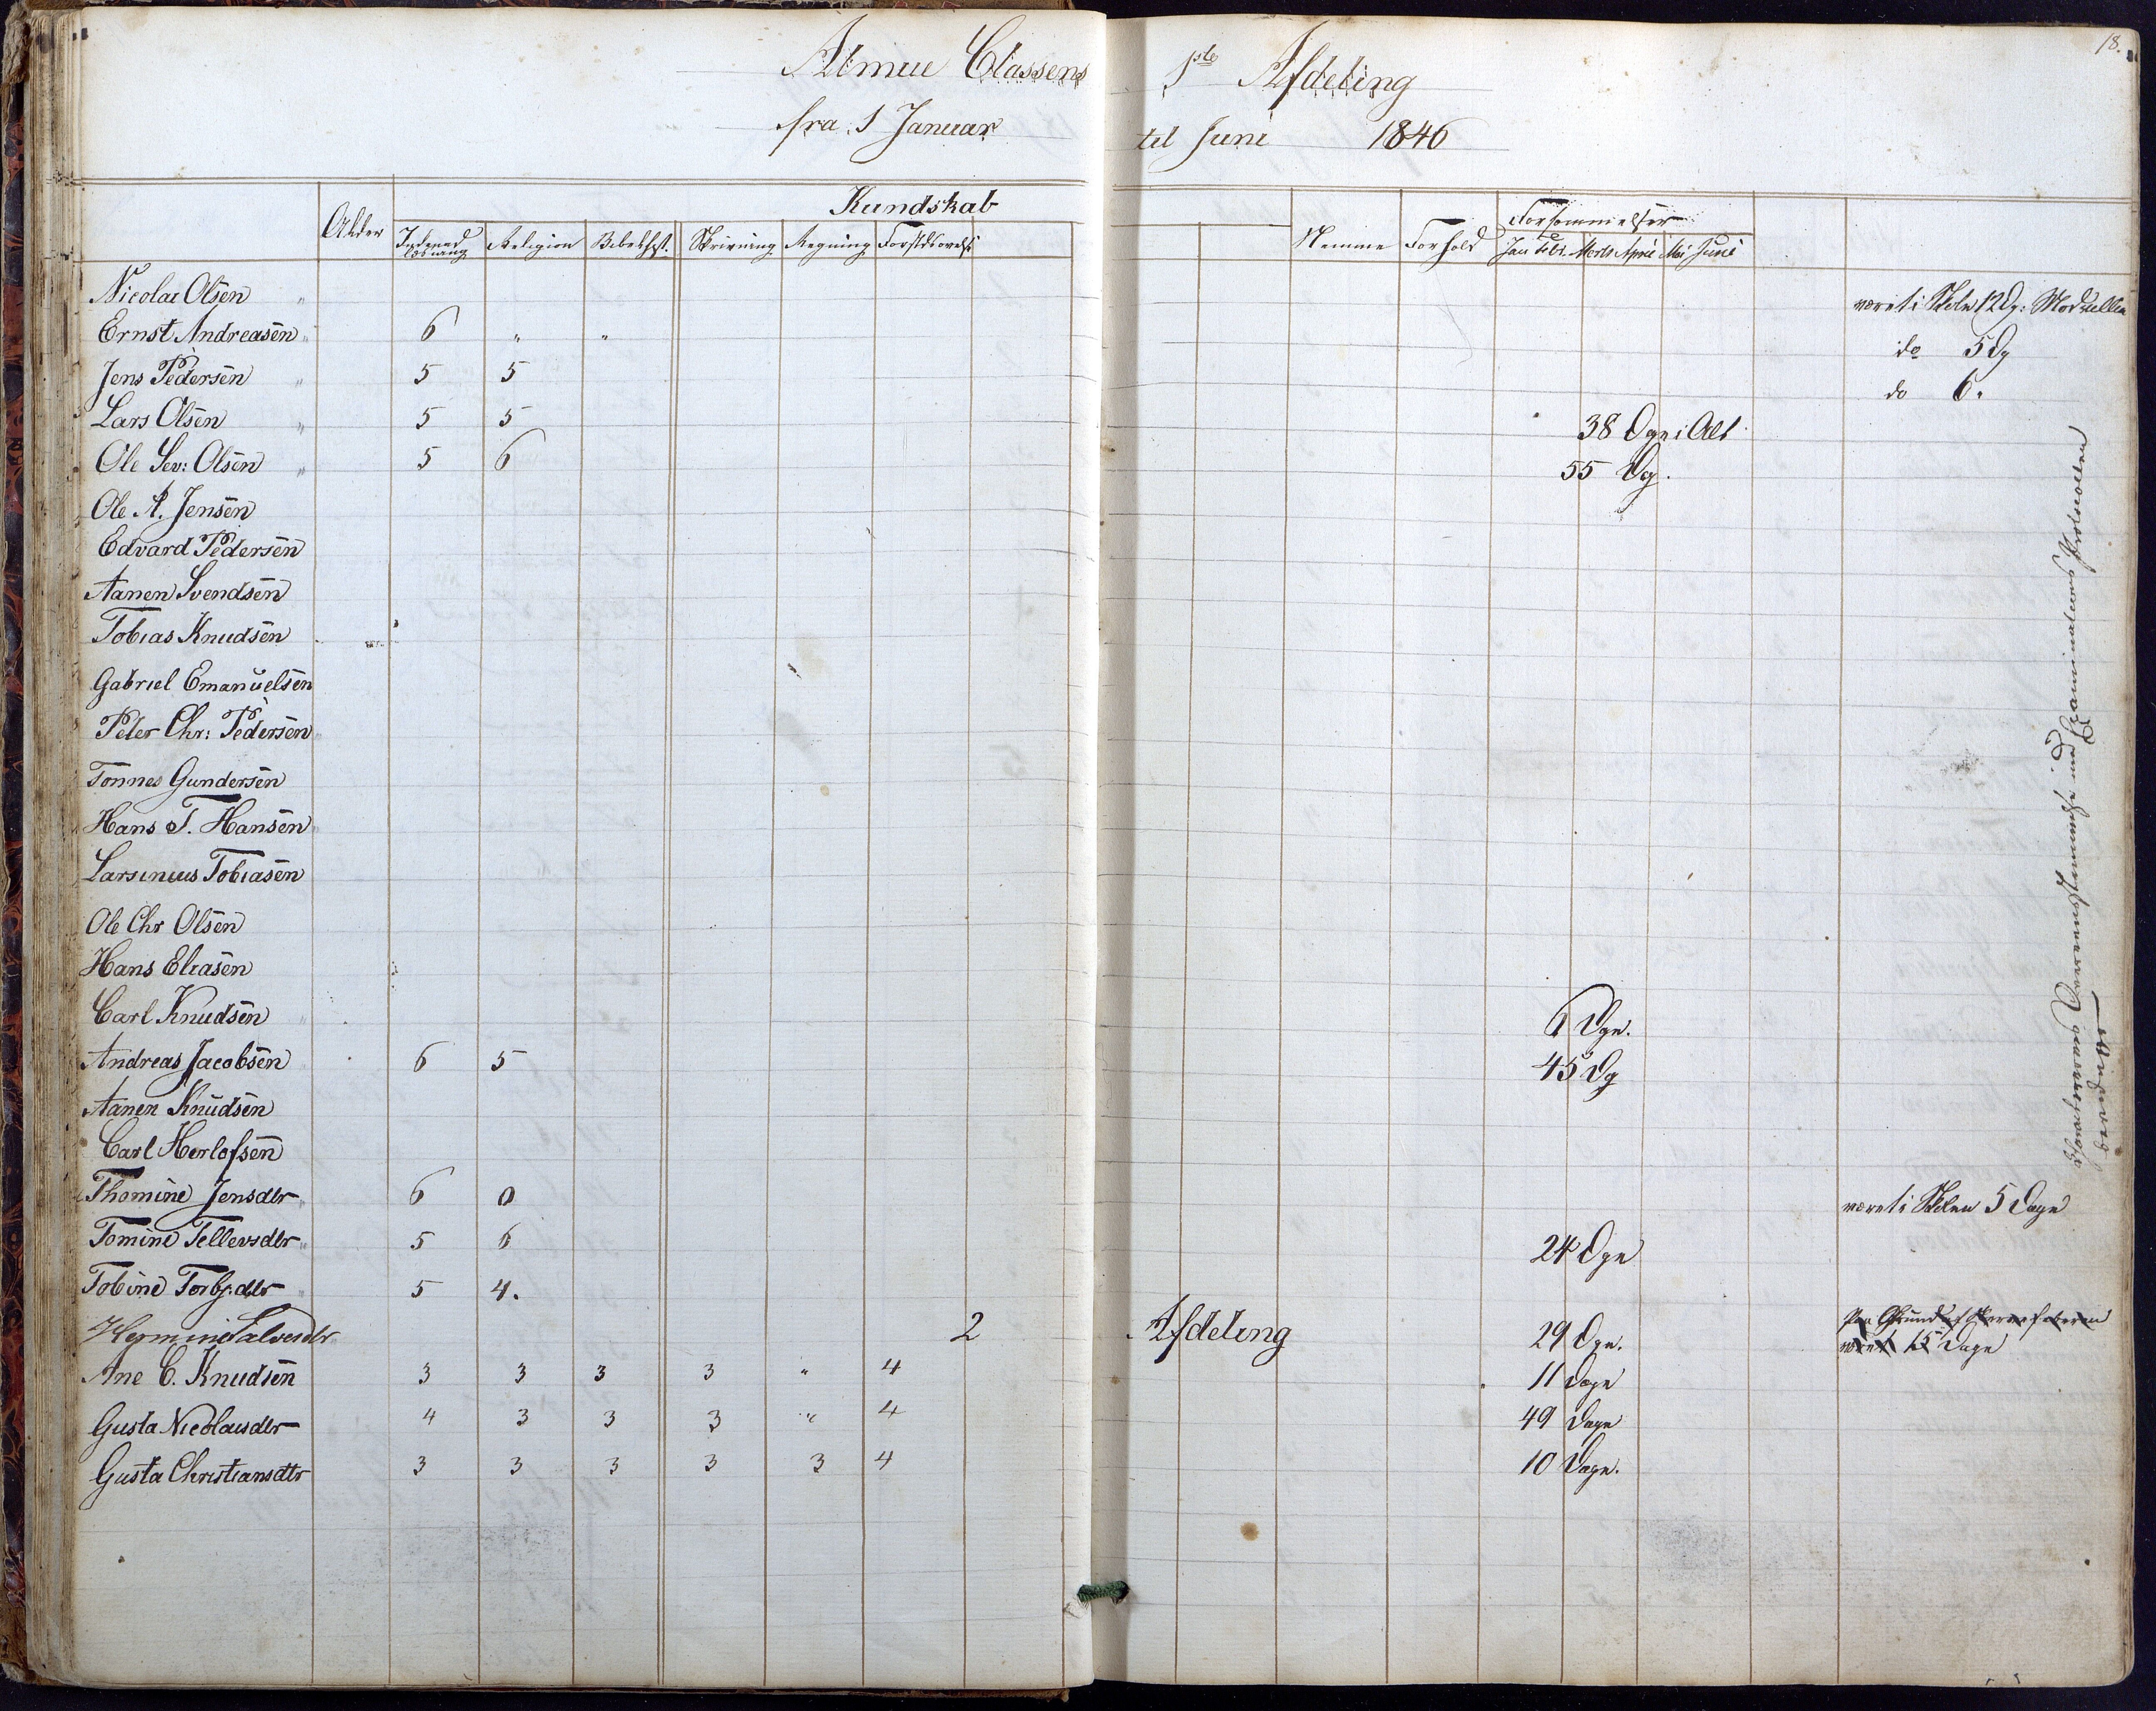 18.
Almue Classens 1ste Afdeling
fra 1 Januar til Juni 1846
Alder Kundskab Nemme Forhold Forsømmelser
Indenad læsning Religion Bibelhist. Skrivning Regning Forstdsøvelse Jan Febr. Marts April Mai Juni
Nicolai Olsen " været i Skoln 12 Dg:
Ernst Andreasen " 6 " " do 5 Dg
Jens Pedersen " 5 5 do 6.
Lars Olsen " 5 5 38 Dage i Alt
Ole Sev: Olsen " 5 6 55 Dg.
Ole A. Jensen
Edvard Pedersen
Aanen Svendsen
Tobias Knudsen
Gabriel Emanuelsen
Peter Chr: Pedersen
Tönnes Gundersen
Hans T. Hansen
Larsinius Tobiasen
Ole Chr Olsen
Hans Eliasen
Carl Knudsen " 6 Dge.
Andreas Jacobsen 6 5 45 Dg
Aanen Knudsen
Carl Herlofsen
Thomine Jensdtr 6 0 været i Skolen 5 Dage
Tomine Tellevsdtr " 5 6 24 Dge
Tobine Torbj:dtr " 5 4.
Hermine Salvesdtr 2 Afdeling 29 Dge. Paa Grund af
været 15 Dage
Ane C. Knudsen 3 3 3 3 " 4 11 Dage
Gusta Nicolaisdtr 4 3 3 3 " 4 49 Dage
Gusta Christiansdtr 3 3 3 3 3 4 10 Dage.
Overeensstemmelse med Examinations Protocollen